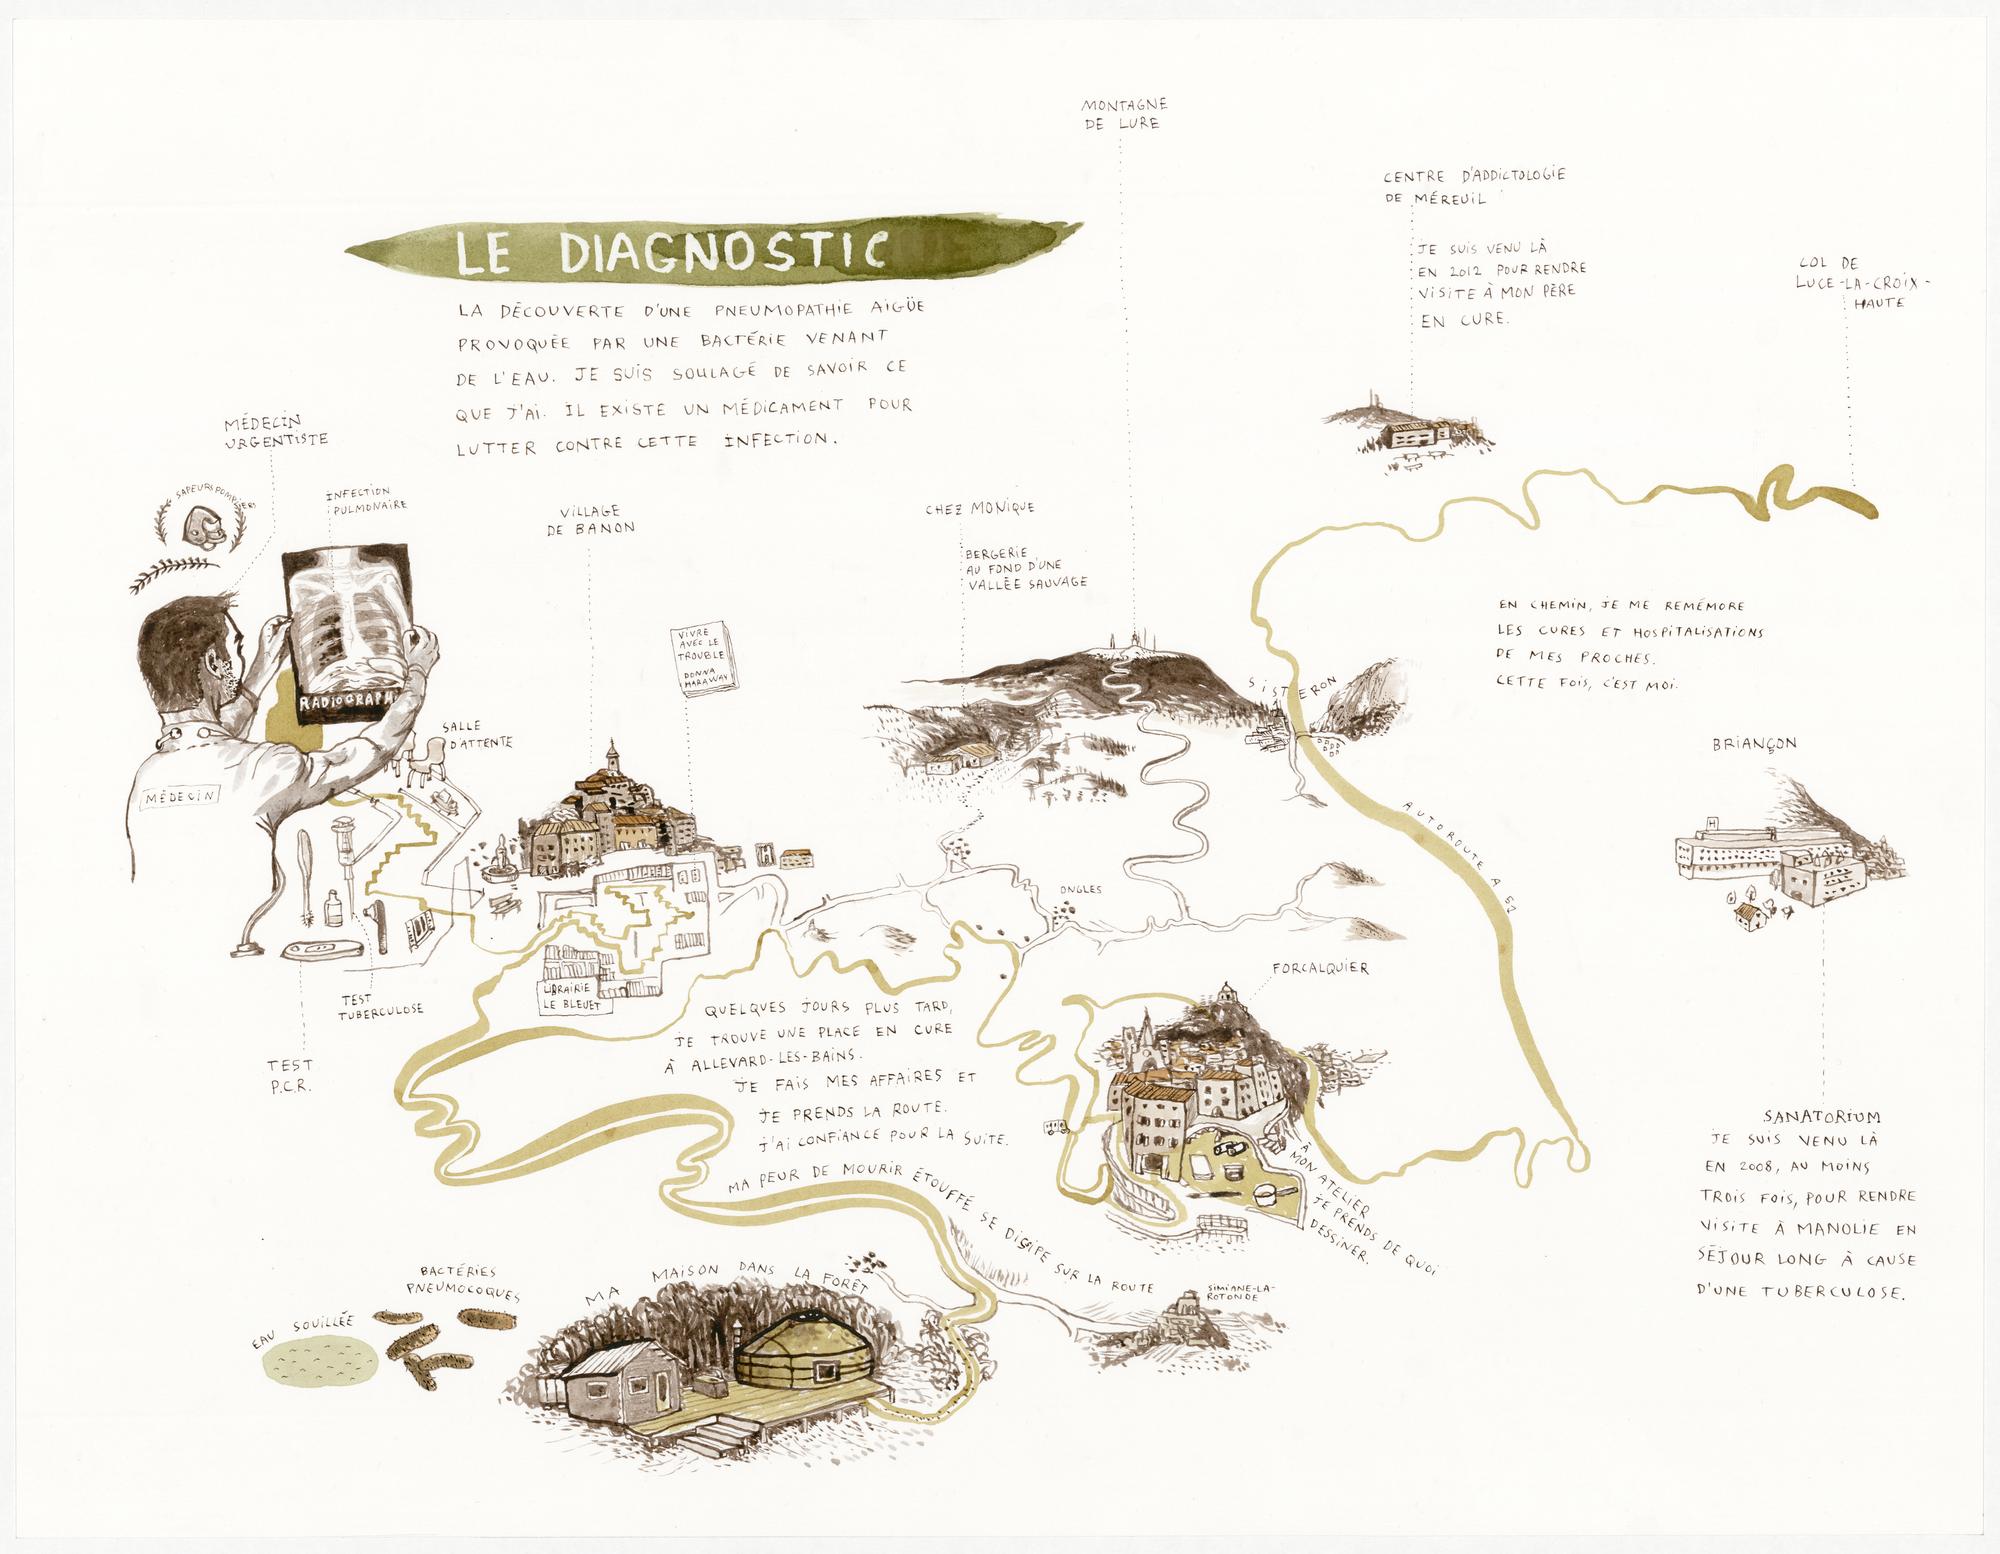 MONTAGNE
DE LURE
CENTRE D'ADDICTOLOGIE
DE MÉREUIL
JE SUIS VENU LÀ
EN 2012 POUR RENDRE
VISITE À MON PÈRE
EN CURE.
COL DE
LUCE-LA-CROIX-
HAUTE
LE DIAGNOSTIC
LA DÉCOUVERTE D'UNE PNEUMOPATHIE AIGÜE
PROVOQUÉE PAR UNE BACTÉRIE VENANT
DE L'EAU. JE SUIS SOULAGÉ DE SAVOIR CE
QUE J'AI. IL EXISTE UN MÉDICAMENT POUR
LUTTER CONTRE CETTE INFECTION.
MÉDECIN
URGENTISTE
SAPEURS POMPIERS
INFECTION
PULMONAIRE
RADIOGRAPH
MÉDECIN
SALLE
D'ATTENTE
VILLAGE
DE BANON
VIVRE
AVEC LE
TROUBLE
DONNA
HARAWAY
CHEZ MONIQUE
BERGERIE
AU FOND D'UNE
VALLÉE SAUVAGE
SISTERON
EN CHEMIN, JE ME REMÉMORE
LES CURES ET HOSPITALISATIONS
DE MES PROCHES.
CETTE FOIS, C'EST MOI.
AUTOROUTE A 51
BRIANÇON
H
H
ONGLES
FORCALQUIER
LIBRAIRIE
LE BLEUET
TEST
TUBERCULOSE
TEST
P.C.R.
QUELQUES JOURS PLUS TARD,
JE TROUVE UNE PLACE EN CURE
À ALLEVARD-LES-BAINS.
JE FAIS MES AFFAIRES ET
JE PRENDS LA ROUTE.
J'AI CONFIANCE POUR LA SUITE.
MA PEUR DE MOURIR ÉTOUFFÉ SE DISSIPE SUR LA ROUTE
À
MON ATELIER
JE PRENDS DE QUOI
DESSINER.
SANATORIUM
JE SUIS VENU LÀ
EN 2008, AU MOINS
TROIS FOIS, POUR RENDRE
VISITE À MANOLIE EN
SÉJOUR LONG À CAUSE
D'UNE TUBERCULOSE.
SIMIANE-LA-
ROTONDE
MA MAISON DANS LA FORÊT
BACTÉRIES
PNEUMOCOQUES
EAU SOUILLÉE